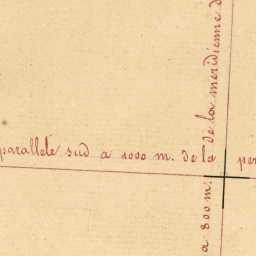 parallele sud a 1000 m. de la per
a 800 m. de la meridienne d